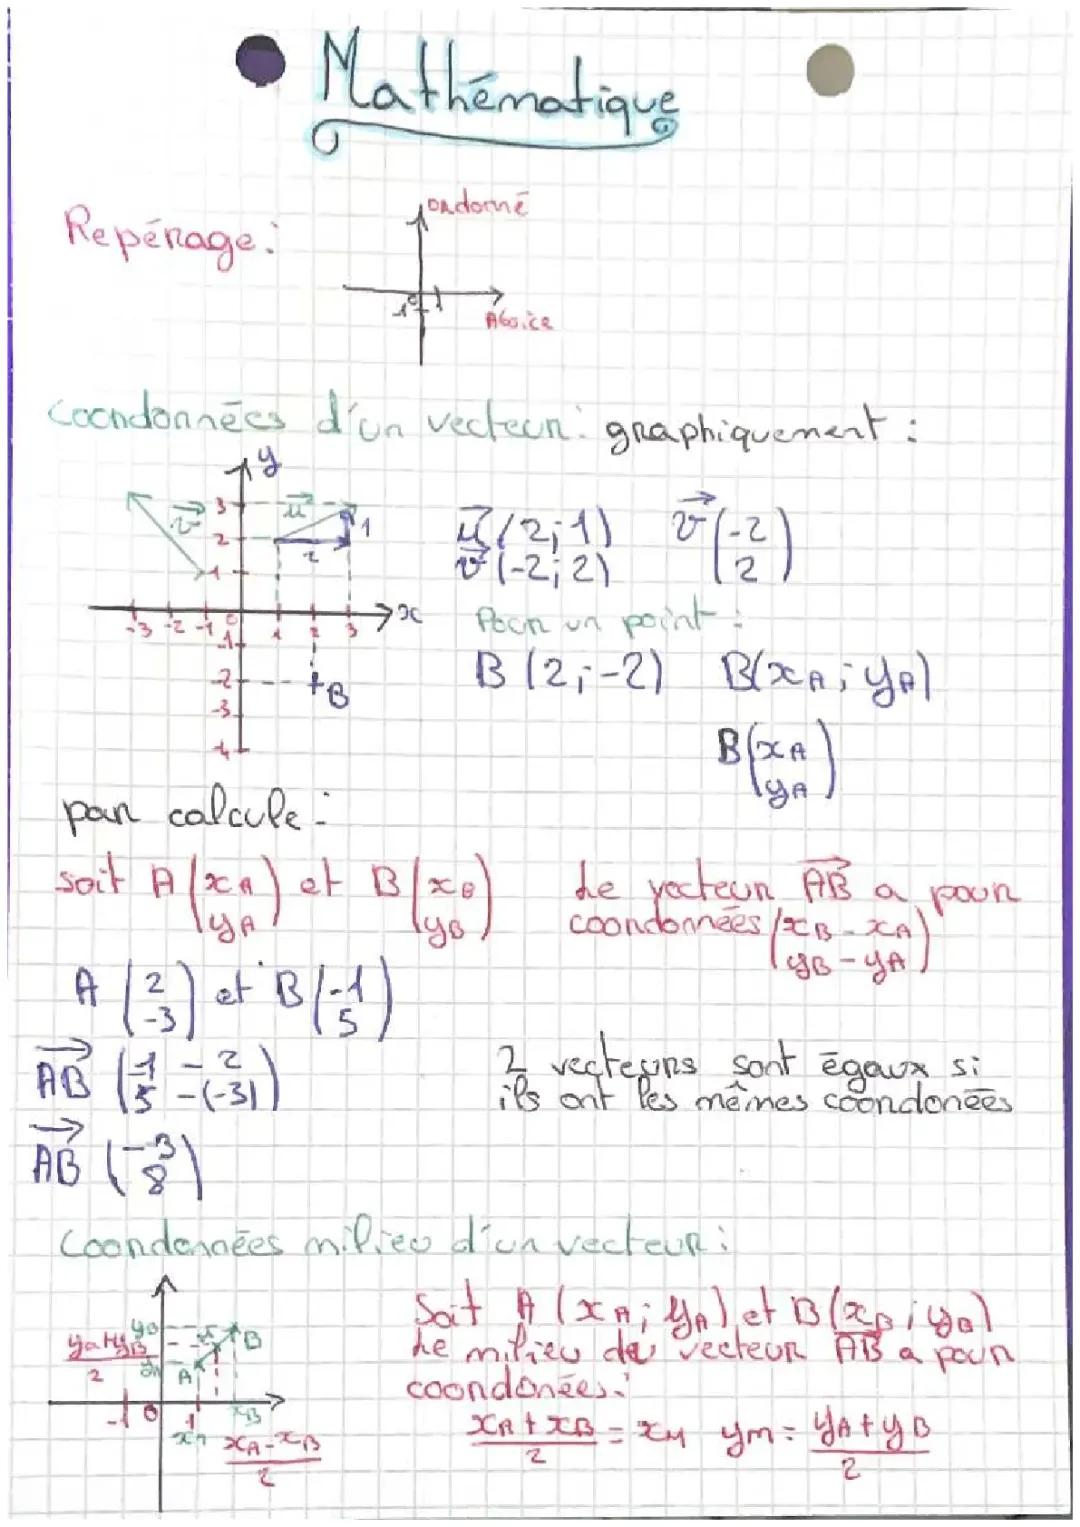 Mathématique
Repérage :
ordonné
Absice
0
1
1
Coordonnées d'un vecteur : graphiquement :
y
3
2
1
v
u
1
2
x
-3 -2 -1 0 1 2 3
-1
-2
-3
-4
B
u (2 ; 1)
v (-2 ; 2)
v (-2
2)
Pour un point :
B (2 ; -2) B(xA ; yA)
B(xA
yA)
par calcule :
soit A (xA et B (xB
yA) yB)
Le vecteur AB a pour
coordonnées (xB - xA
yB - yA)
A (2 et B (-1
-3) 5)
AB (-1 - 2
5 - (-3))
AB (-3
8)
2 vecteurs sont égaux si
ils ont les mêmes coordonées
Coordonnées milieu d'un vecteur :
yB
yA+yB
2
A
B
-1 0 1
xB
xA - xB
2
Soit A (xA ; yA) et B (xB ; yB)
Le milieu du vecteur AB a pour
coordonées :
xA + xB = xM ym = yA + yB
2 2